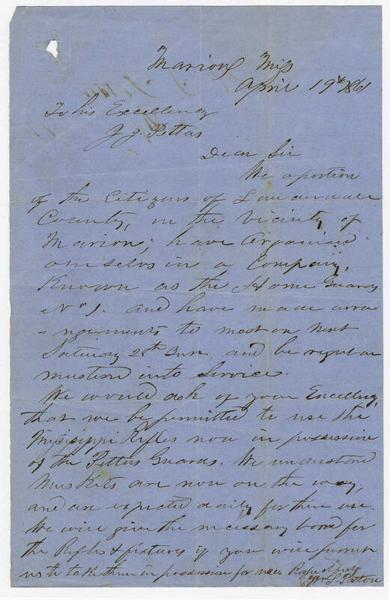 Marion Miss
April 19th 1861
To his Excellency
J. J. Pettus
Dear Sir
We a portion
of the Citizens of Lauderdale
County, in the Vicinity of
Marion; have Organised
ourselvs in a Company,
Known as the Home Guards
No 1. and have made arra
ngements to meet on next
Saturday 28th Inst. and be regular
mustered into Service.
We would ask of your Excellency
that we be permitted to use the
Mississippi Rifles now in possession
of the Pettus Guards. We understand
Muskets are now on the way,
and are expected daily for their use.
We will give the necessary bond for
the Rifles & fixtures if you will permit
us to take them in possession for use. Respectfully